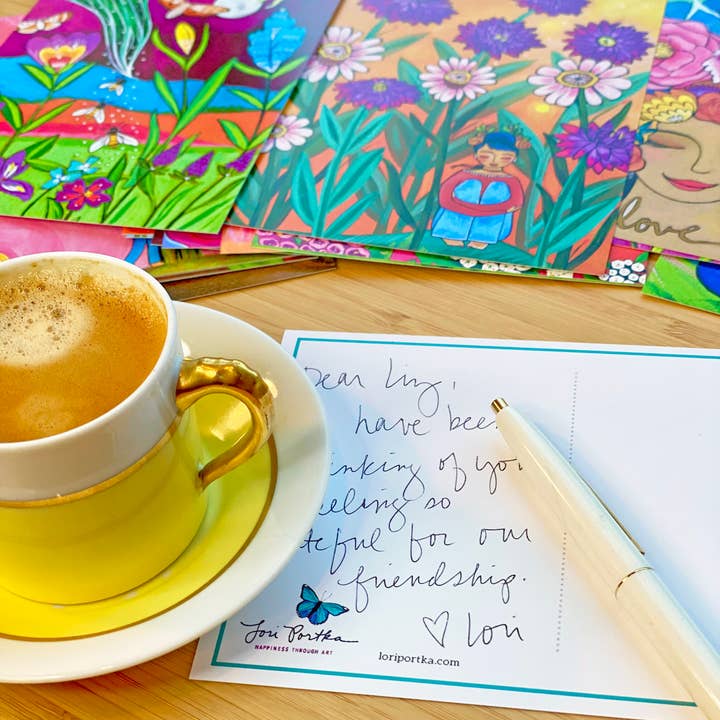 love
Dear Liz,
have bee
inking of you
eeling so
teful for our
friendship.
♡ Lori
Lori Portka
HAPPINESS THROUGH ART
loriportka.com